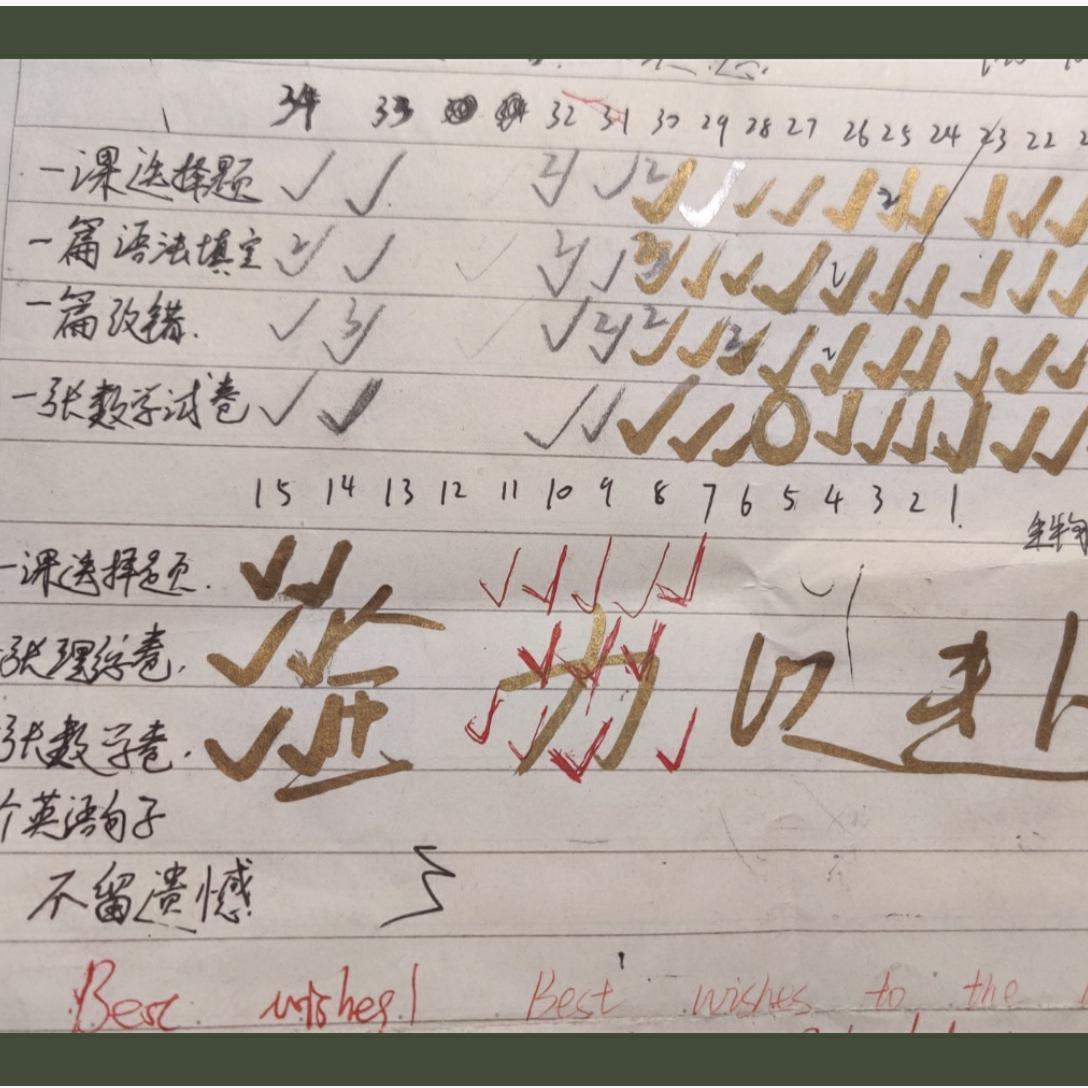 34 33 32 31 30 29 28 27 26 25 24 23 22
一课选择题
一篇语法填空
一篇改错.
一张数学试卷
15 14 13 12 11 10 9 8 7 6 5 4 3 2 1
一课选择题.
张理综卷.
张数学卷.
个英语句子
不留遗憾
Best wishes! Best wishes to the